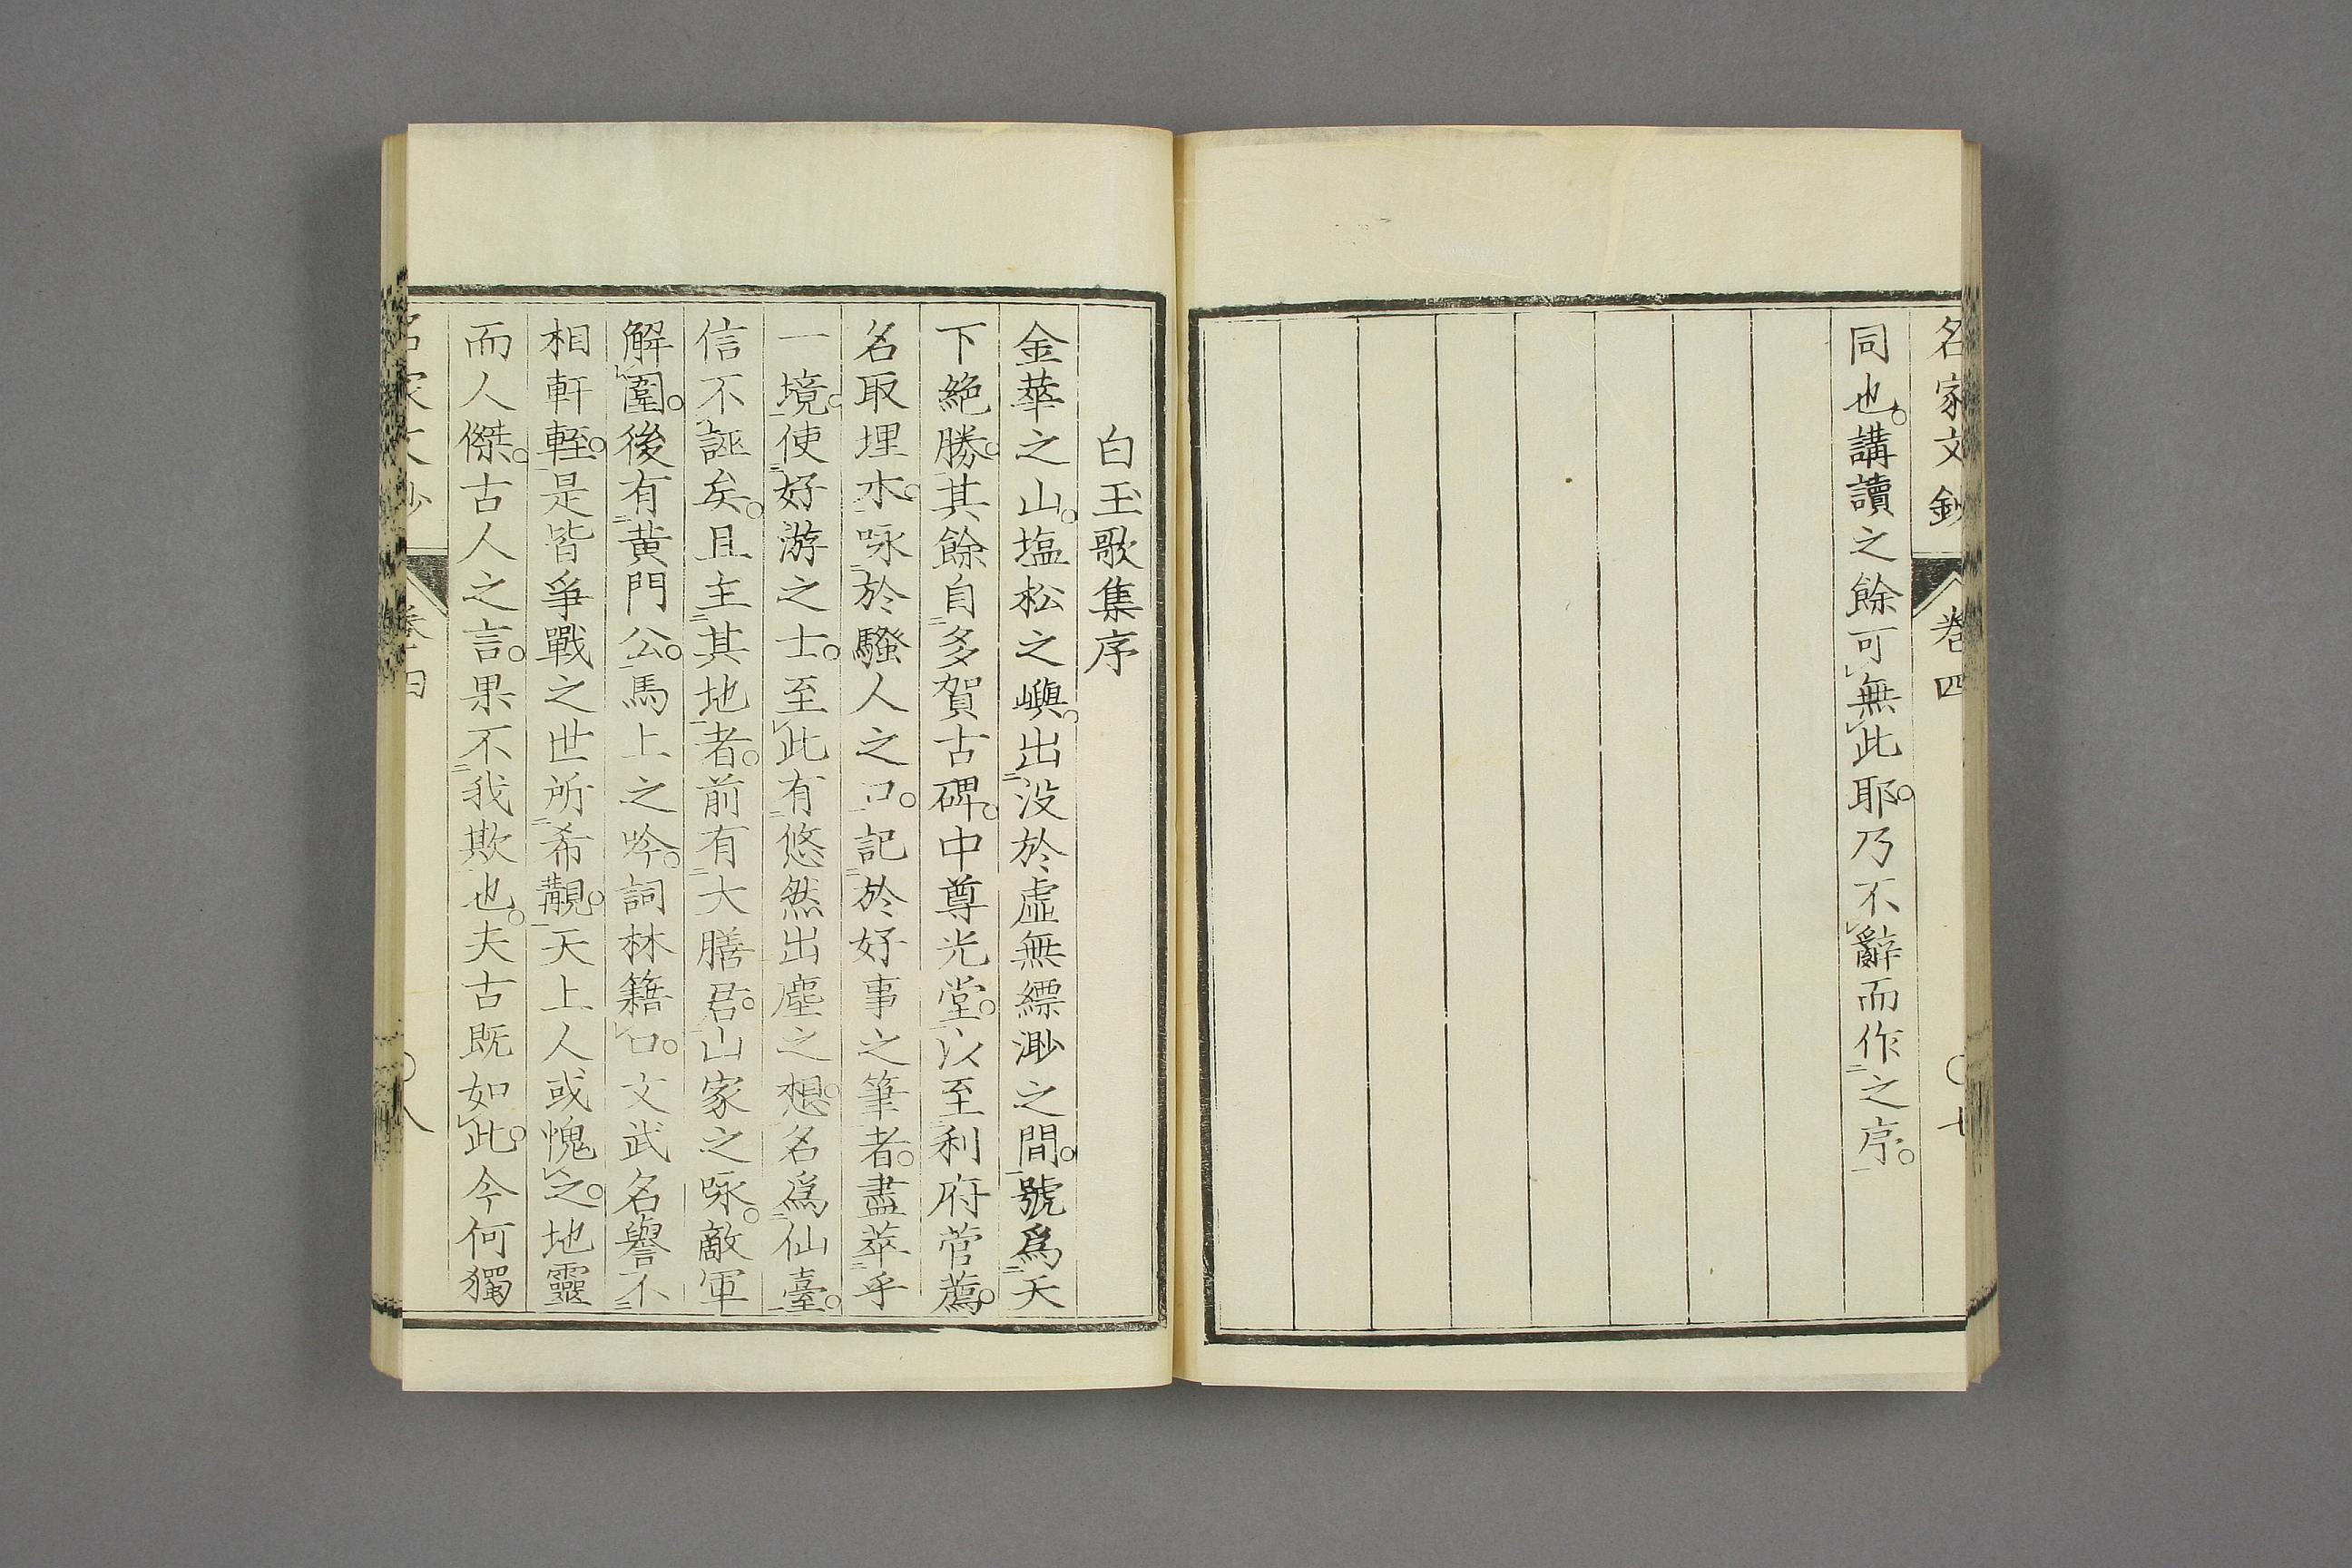 名家文鈔 卷四 〇七
同也。講讀之餘可無此耶。乃不辭而作之序。
白玉歌集序
金華之山。塩松之嶼。出没於虛無縹渺之間。號爲天
下絶勝。其餘自多賀古碑。中尊光堂。以至利府菅薦。
名取埋木。咏於騷人之口。記於好事之筆者。盡萃乎
一境。使好游之士。至此有悠然出塵之想。名爲仙臺。
信不誣矣。且主其地者。前有大膳君。山家之咏。敵軍
解圍。後有黄門公。馬上之吟。詞林籍口。文武名譽不
相軒輊。是皆爭戰之世所希覯。天上人或愧之。地靈
而人傑。古人之言。果不我欺也。夫古既如此。今何獨
名家文鈔 卷四 〇八